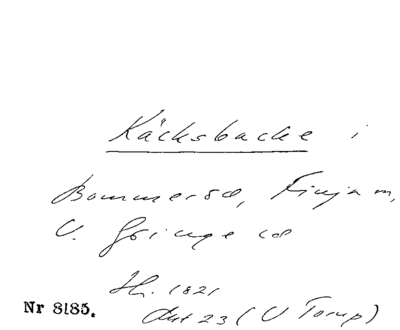 Käcksbacke i
Bommersö, Finja m,
V. Göinge hd
Hr. 1821
Akt 23 (V Torup)
Nr 8185.